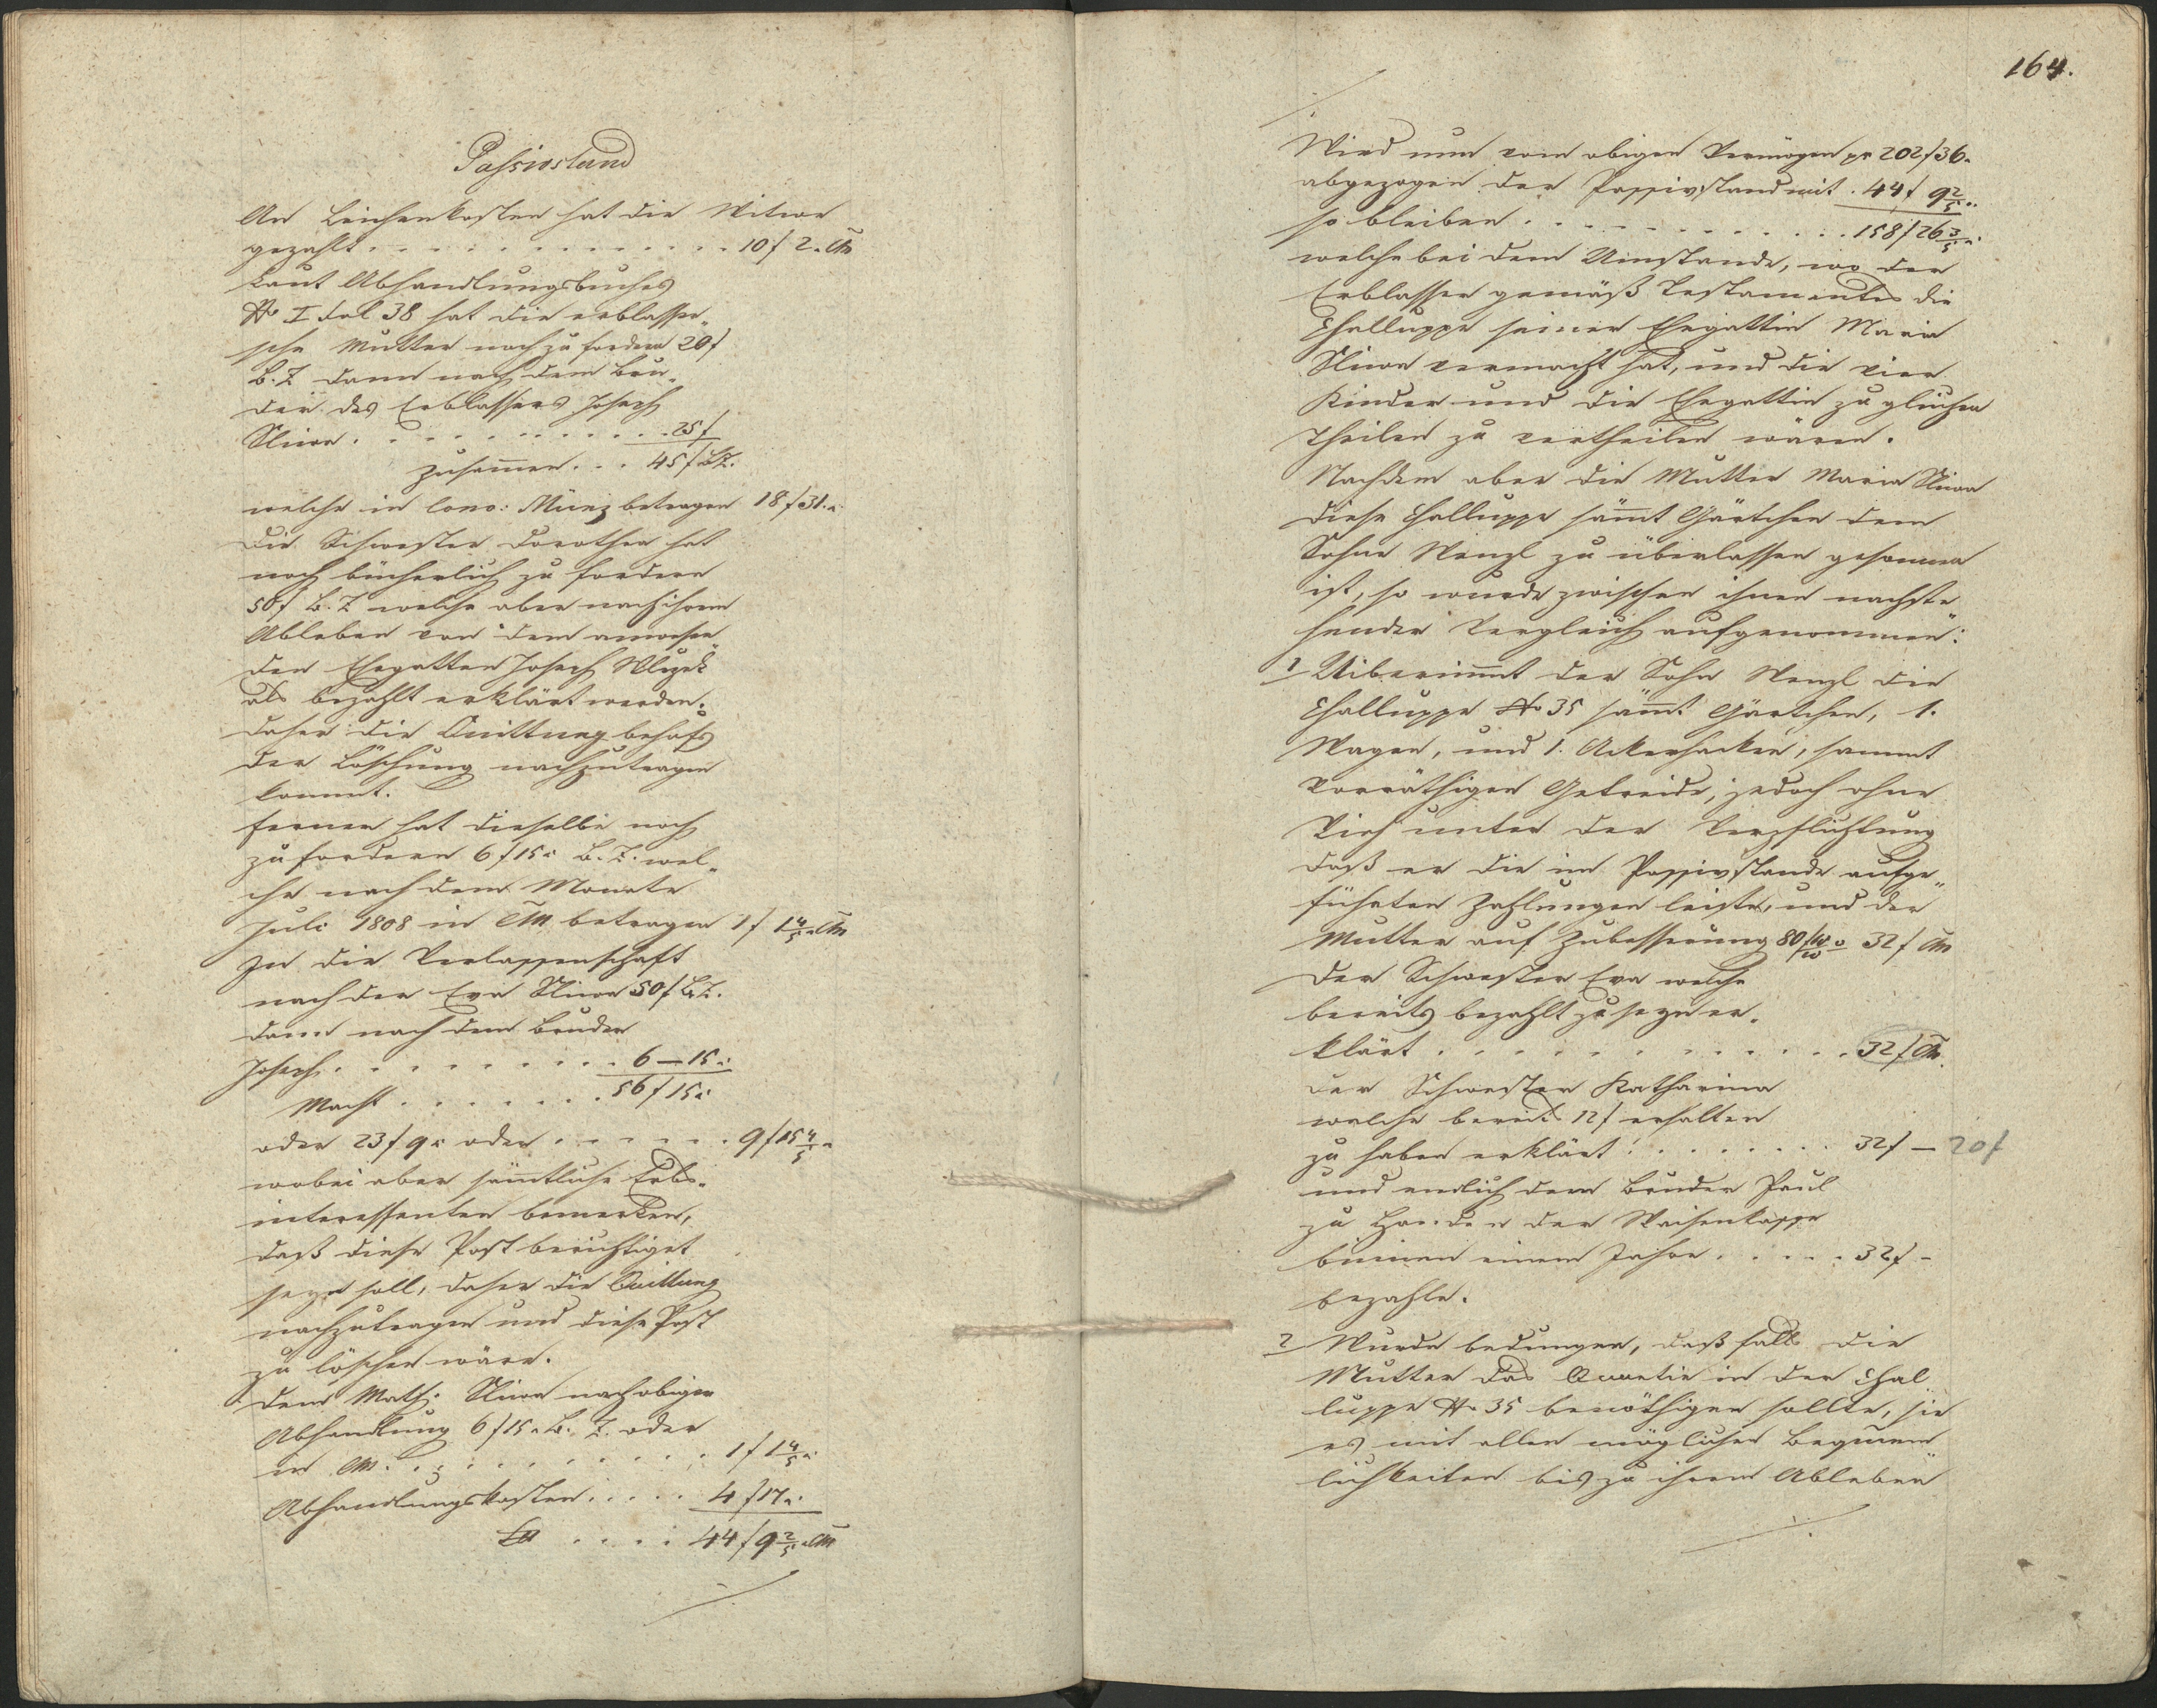 Passivstand
An Leichenkosten hat die Witwe
gezahlt . . . . . . . . . . 10 f 2 x CM
Laut Abhandlungsbuches
No I Fol 38 hat die erblasseri„
sche Mutter noch zu fordern 20 f
B. Z. dann nach dem Bru„
der des Erblassers Joseph
. . . . . . . . . . 25 f
zusammen . . . 45 f B.Z.
welche in Conv: Münz betragen 18 f 31 x
Die Schwester Dorothea hat
noch bücherlich zu fordern
50 f B. Z. welche aber nach ihrem
Ableben von dem anwesen„
den Ehegatten Joseph
als bezahlt erklärt werden,
daher die Quittung behufs
der Löschung nachzutragen
kommt.
Ferner hat dieselbe noch
zu fordern 6 f 15 x B. Z. wel„
che nach dem Monate
Juli 1808 in CM betragen 1 f 1 4/5 x CM
In die Verlassenschaft
nach der Eva 50 f B.Z.
dann nach dem Bruder
Joseph . . . . . . . . 6 — 15 x
Macht . . . . . . . 56 f 15 x
oder 23 f 9 x oder . . . . . . 9 f 15 4/5 x
wobei aber sämtliche Erbs„
interessenten bemerken,
daß diese Post berichtiget
seyn soll, daher die Quittung
nachzutragen und diese Post
zu löschen wäre.
Dem Math: nach obiger
Abhandlung 6 f 15 x B. Z. oder
in CM . . . . . . . . . 1 f 1 4/5 x
Abhandlungskosten . . . . . 4 f 17 x
. . . . 44 f 9 2/5 x CM
./.
164.
./.
Wird nun vom obigen Vermögen pr 202 f 36 x
abgezogen der Passivstand mit . 44 f 9 2/5 x
so bleiben . . . . . . . . . . . 158 f 26 3/5 x
welche bei dem Umstande, wo der
Erblasser gemäß Testamentes die
Challuppe seiner Ehegattin Maria
vermacht hat, und die vier
Kinder und die Ehegattin zu gleichen
Theilen zu vertheilen wären.
Nachdem aber die Mutter Maria
diese Challuppe sammt Gärtchen dem
Sohne Wenzl zu überlassen gesonnen
ist, so wurde zwischen ihnen nachste„
hender Vergleich aufgenommen:
1 Uiberimmt der Sohn Wenzl die
Challuppe No 35 sammt Gärtchen, 1.
Wagen, und 1. Ackerhacken, sammt
vorräthigen Getreide, jedoch ohne
Vieh unter der Verpflichtung
daß er die im Passivstande aufge„
führten Zahlungen leiste, und der
Mutter auf Zubesserung 80 f 32 f CM
der Schwester Eva welche
bereits bezahlt zu seyn er„
klärt . . . . . . . . . . . . 32 f CM.
der Schwester Katharina
welche bereits 12 f erhalten
zu haben erklärt . . . . . . . 32 f — 20 f
und endlich dem Bruder Paul
zu Handen der Waisenkasse
binnen einem Jahre . . . . . 32 f -
bezahle.
2 Wurde bedungen, daß falls die
Mutter das Quartir in der Chal„
luppe No 35 benöthigen sollte, sie
es mit allen möglichen Bequem„
lichkeiten bis zu ihrem Ableben
./.